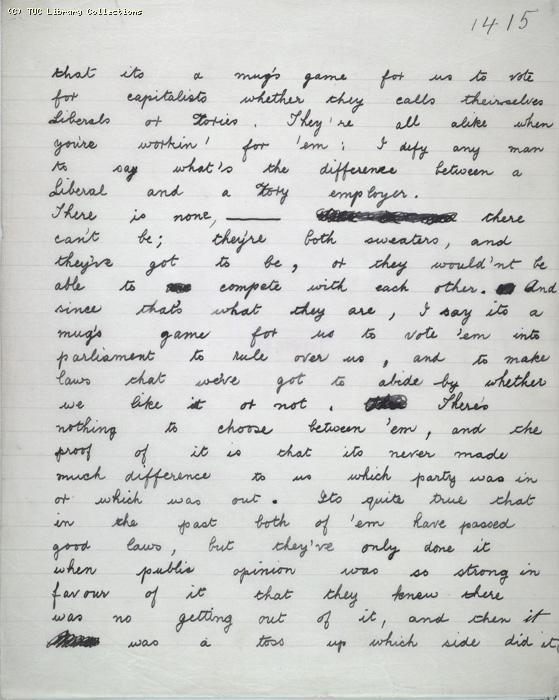 (C) TUC Library Collections
1415
that its a mug's game for us to vote
for capitalists whether they calls theirselves
Liberals or Tories. They're all alike when
you're workin' for 'em; I defy any man
to say what's the difference between a
Liberal and a Tory employer.
There is none, —— there
can't be; they're both sweaters, and
they've got to be, or they would'nt be
able to compete with each other. And
since that's what they are, I say its a
mug's game for us to vote 'em into
parliament to rule over us, and to make
laws that we've got to abide by whether
we like it or not. There's
nothing to choose between 'em, and the
proof of it is that its never made
much difference to us which party was in
or which was out. Its quite true that
in the past both of 'em have passed
good laws, but they've only done it
when public opinion was so strong in
favour of it that they knew there
was no getting out of it, and then it
was a toss up which side did it.